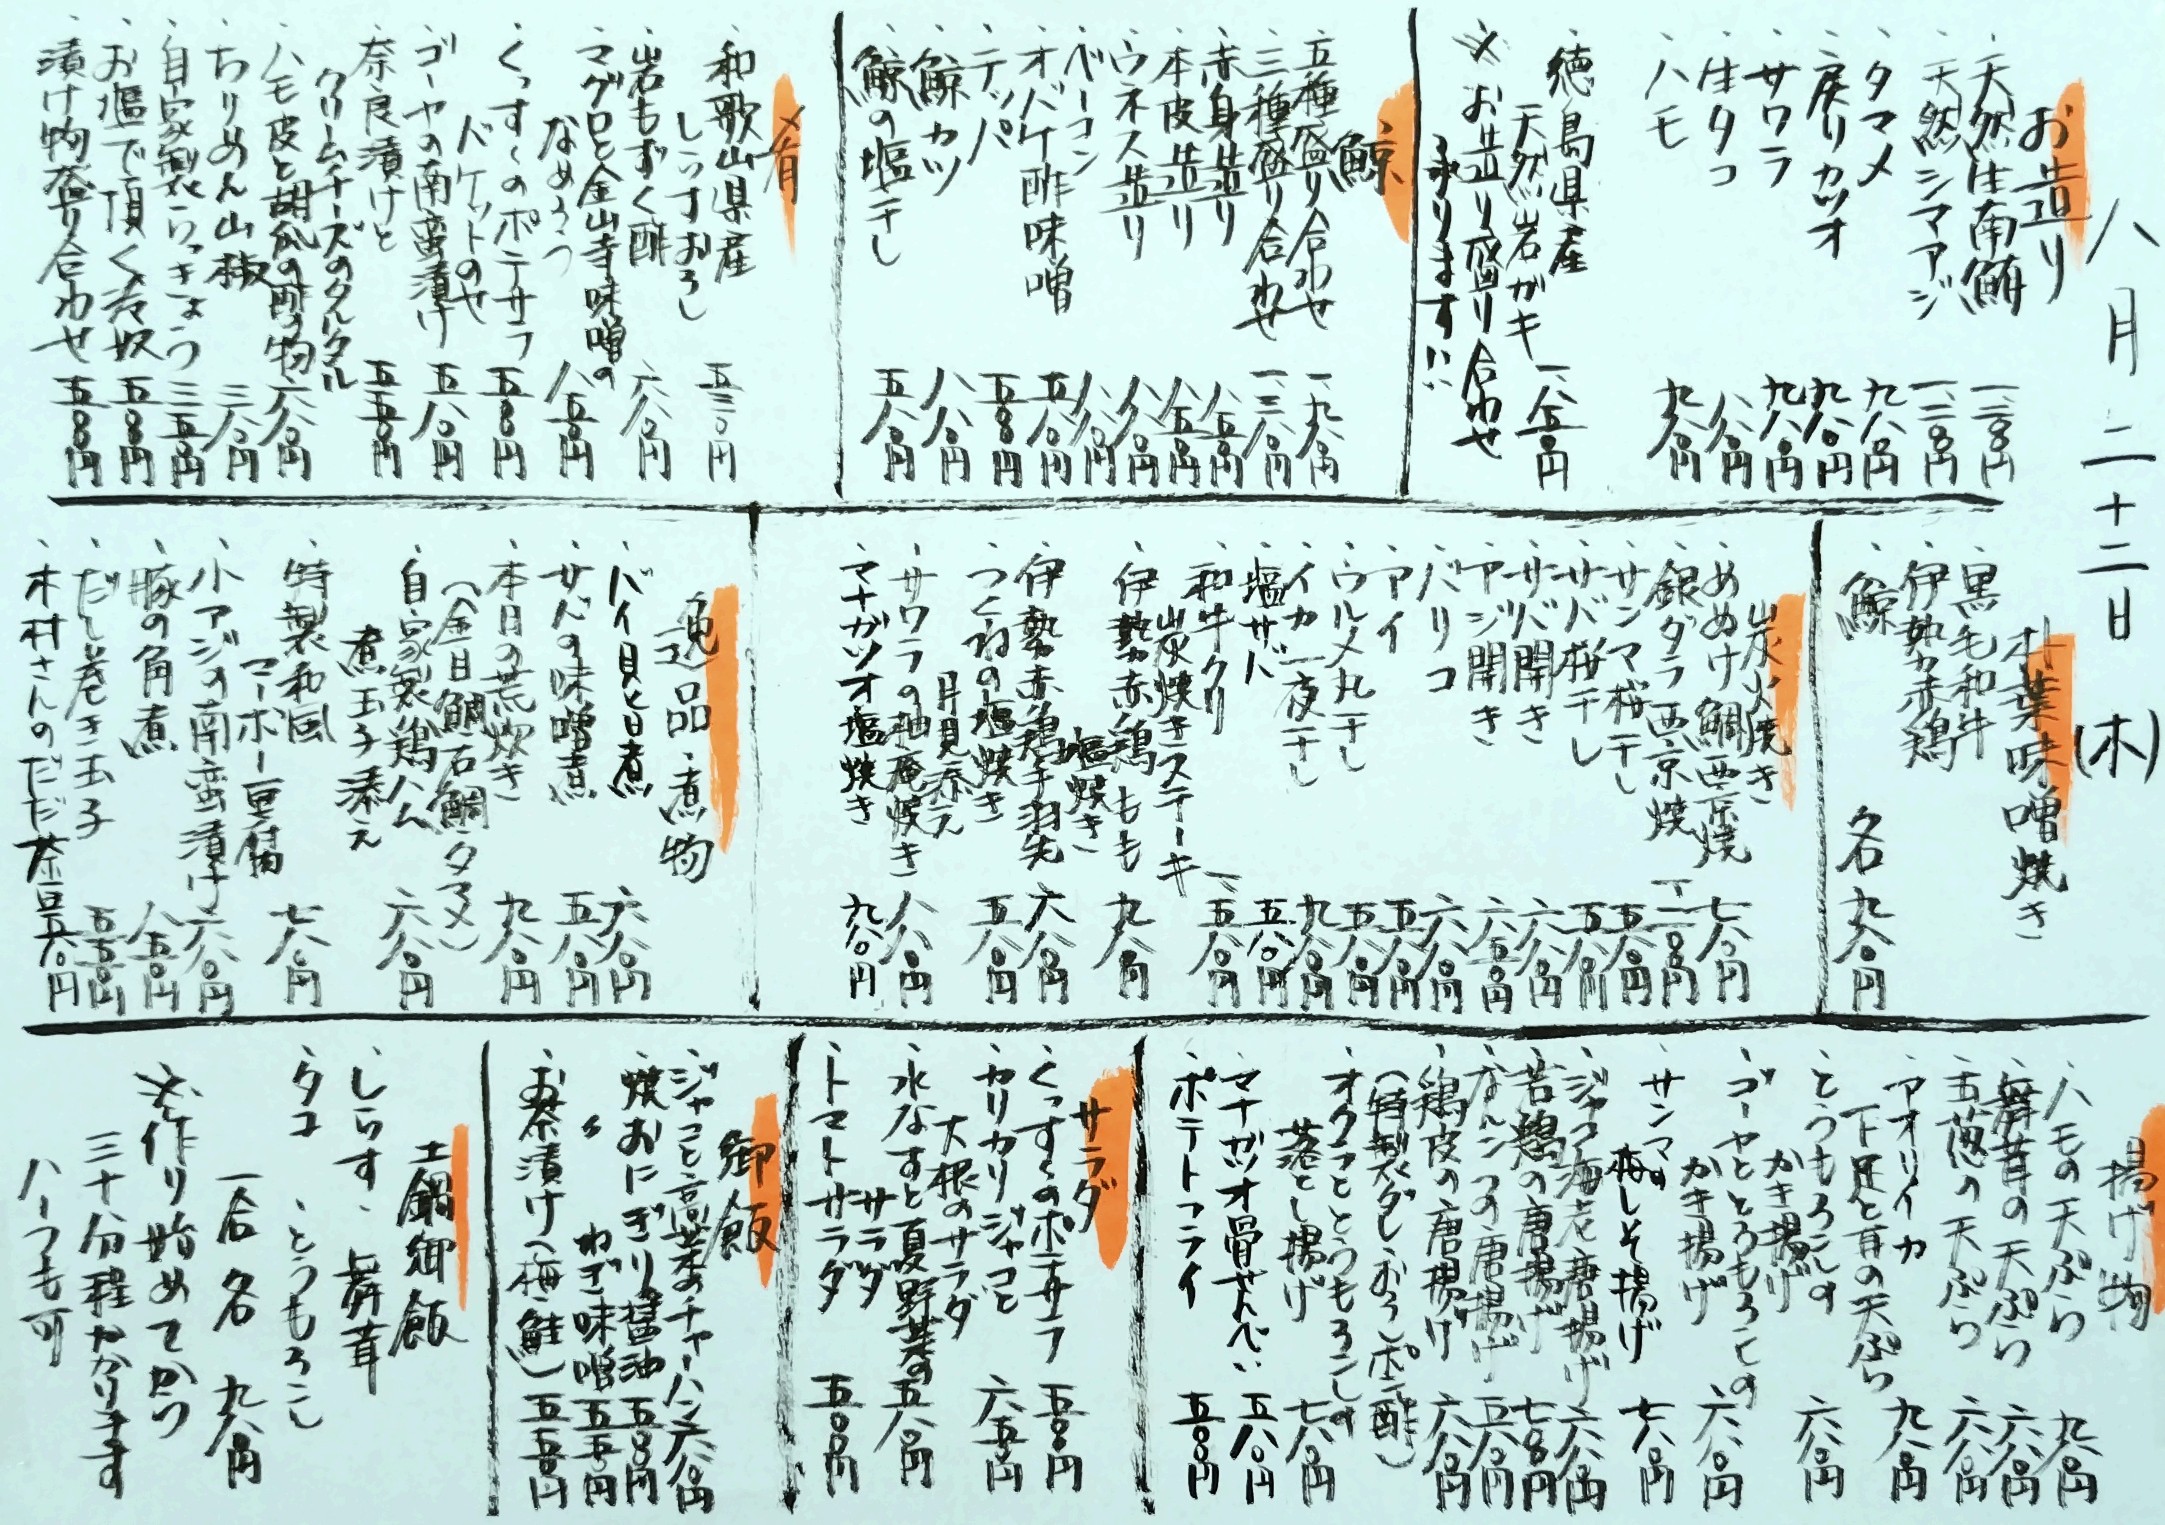 八月二十二日(木)
お造り
、天然生南鮪 一、二〇〇円
、天然シマアジ 一、二〇〇円
、タマメ 九八〇円
、戻りカツオ 九八〇円
、サワラ 九八〇円
、生タコ 八八〇円
、ハモ 九八〇円
、徳島県産
天然岩ガキ 一、八五〇円
※お造り盛り合わせ
承ります!!
鯨
、五種盛り合わせ 一、九八〇円
、三種盛り合わせ 一、三八〇円
、赤身造り 八五〇円
、本皮造り 八五〇円
、ウネス造り 八八〇円
、ベーコン 八八〇円
、オバケ酢味噌 五八〇円
、テッパ 五八〇円
、鯨カツ 八八〇円
、鯨の塩干し 五八〇円
肴
、和歌山県産
しらすおろし 五三〇円
、岩もずく酢 六八〇円
、マグロと金山寺味噌の
なめろう 八五〇円
、くっすぅのポテサラ
バケットのせ 五五〇円
、ゴーヤの南蛮漬け 五八〇円
、奈良漬けと
クリームチーズのタルタル 五五〇円
、ハモ皮と胡瓜の酢の物 六八〇円
、ちりめん山椒 三八〇円
、自家製らっきょう 三五〇円
、お塩で頂く冷奴 五五〇円
、漬け物盛り合わせ 五五〇円
朴葉味噌焼き
、黒毛和牛
、伊勢赤鶏
、鯨 各九八〇円
炭火焼き
、めぬけ鯛西京焼 七八〇円
、銀ダラ西京焼 一、一〇〇円
、サンマ桜干し 五八〇円
、サバ桜干し 五八〇円
、サバ開き 六八〇円
、アジ開き 六五〇円
、バリコ 六八〇円
、アイ 五八〇円
、ウルメ丸干し 五五〇円
、イカ一夜干し 九八〇円
、塩サバ 五八〇円
、和牛クリ
炭焼きステーキ 一、五八〇円
、伊勢赤鶏もも
塩焼き 九八〇円
、伊勢赤鶏手羽先 六八〇円
、つくねの塩焼き
月見添え 五八〇円
、サワラの柚庵焼き 八八〇円
、マナガツオ塩焼き 九八〇円
逸品・煮物
、バイ貝旨煮 六八〇円
、サバの味噌煮 五八〇円
、本日の荒炊き
(金目鯛、石鯛、タマメ) 九八〇円
、自家製鶏ハム
煮玉子添え 六八〇円
、特製和風
マーボー豆腐 七八〇円
、小アジの南蛮漬け 六八〇円
、豚の角煮 八五〇円
、だし巻き玉子 五五〇円
、木村さんのだだ茶豆 五八〇円
揚げ物
、ハモの天ぷら 九八〇円
、舞茸の天ぷら 六八〇円
、玉葱の天ぷら 六八〇円
、アオリイカ
下足と肴の天ぷら 九八〇円
、とうもろこしの
かき揚げ 六八〇円
、ゴーヤととうもろこしの
かき揚げ 六八〇円
、サンマの
梅しそ揚げ 七八〇円
、ジャコ海老唐揚げ 六八〇円
、若鶏の唐揚げ 七八〇円
、なんこつの唐揚げ 五八〇円
、鶏皮の唐揚げ
(特製ダレ、おろしポン酢) 六八〇円
、オクラととうもろこしの
落とし揚げ 七八〇円
、マナガツオ骨せんべい 五八〇円
、ポテトフライ 五五〇円
サラダ
、くっすぅのポテサラ 五五〇円
、カリカリジャコと
大根のサラダ 六五〇円
、水なすと夏野菜の
サラダ 五八〇円
、トマトサラダ 五五〇円
御飯
、ジャコと高菜のチャーハン 六八〇円
、焼おにぎり醤油 五五〇円
、〃 ねぎ味噌 五五〇円
、お茶漬け(梅、鮭) 五五〇円
土鍋御飯
、しらす 、舞茸
、タコ 、とうもろこし
一合 各 九八〇円
※作り始めてから
三十分程かかります
ハーフも可